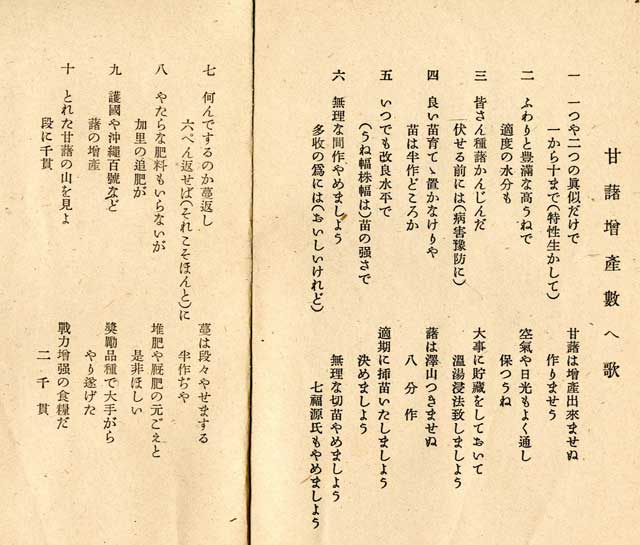 甘藷增産數へ歌
一 一つや二つの眞似だけで 甘藷は增産出來ませぬ
一から十まで(特性生かして) 作りませう
二 ふわりと豊滿な高うねで 空氣や日光もよく通し
適度の水分も 保つうね
三 皆さん種藷かんじんだ 大事に貯藏をしておいて
伏せる前には(病害豫防に) 溫湯浸法致しましよう
四 良い苗育てゝ置かなけりや 藷は澤山つきませぬ
苗は半作どころか 八分作
五 いつでも改良水平で 適期に挿苗いたしましよう
(うね幅株幅は)苗の强さで 決めましよう
六 無理な間作やめましよう 無理な切苗やめましよう
多收の爲には(おいしいけれど) 七福源氏もやめましよう
七 何んでするのか蔓返し 蔓は段々やせまする
六ぺん返せば(それこそほんと)に 半作ぢや
八 やたらな肥料もいらないが 堆肥や厩肥の元ごえと
加里の追肥が 是非ほしい
九 護國や沖繩百號など 奬勵品種で大手がら
藷の增産 やり遂げた
十 とれた甘藷の山を見よ 戰力增强の食糧だ
段に千貫 二千貫